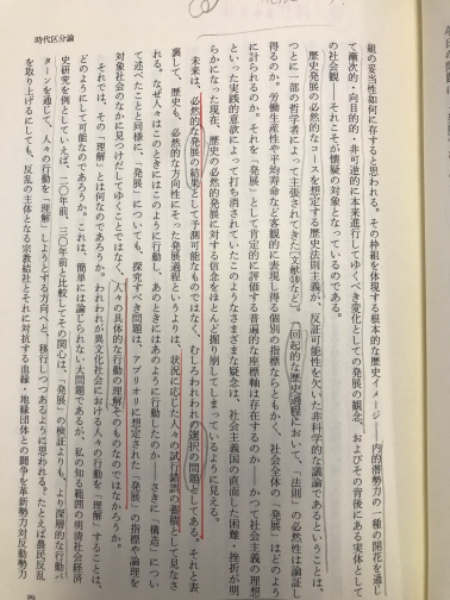 時代区分論
組の妥当性如何に存すると思われる。その枠組を体現する根本的な歴史イメージ――内的潜勢力の一種の開花を通じ
て漸次的・向目的的・非可逆的に本来進行してゆくべき変化としての発展の観念、およびその背後にある実体として
の社会観――それこそが懐疑の対象となっているのである。
歴史発展の必然的なコースを想定する歴史法則主義が、反証可能性を欠いた非科学的な議論であるということは、
つとに一部の哲学者によって主張されてきた〔文献⑱など〕。一回起的な歴史過程において、「法則」の必然性は論証し
得るのか。労働生産性や平均寿命など客観的に表現し得る個別の指標ならともかく、社会全体の「発展」はどのよう
に計られるのか。それを「発展」として肯定的に評価する普遍的な座標軸は存在するのか――かつて社会主義の理想
といった実践的意欲によって打ち消されていたこのようなさまざまな疑念は、社会主義国の直面した困難・挫折が明
らかになった現在、歴史の必然的発展に対する信念をほとんど掘り崩してしまっているように見える。
未来は、必然的な発展の結果として予測可能なものではなく、むしろわれわれの選択の問題としてある。それと表
裏して、歴史も、必然的な方向性にそった発展過程というよりは、状況に応じた人々の試行錯誤の蓄積として見なさ
れる。なぜ人々はこのときにはこのように行動し、あのときにはあのように行動したのか――さきに「構造」につい
て述べたことと同様に、「発展」についても、探究すべき問題は、アプリオリに想定された「発展」の指標や論理を
対象社会のなかに見つけだしてゆくことではなく、人々の具体的な行動の理解そのものなのではなかろうか。
それでは、その「理解」とは何なのであろうか。われわれが異文化社会における人々の行動を「理解」することは、
どのようにして可能なのであろうか。これは、簡単には論じられない大問題であるが、私の知る範囲の明清社会経済
史研究を例としていえば、二〇年前、三〇年前と比較してその関心は、「発展」の検証よりも、より深層的な行動パ
ターンを通じて、人々の行動を「理解」しようとする方向へと、移行しつつあるように思われる。たとえば農民反乱
を取り上げるにしても、反乱の主体となる宗教結社とそれに対抗する血縁・地縁団体との闘争を革新勢力対反動勢力